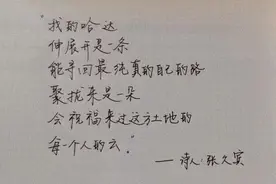 "我的哈达
伸展开是一条
能寻回最纯真的自己的路
聚拢来是一朵
会祝福来过这方土地的
每一个人的云"
——诗人:张久宾